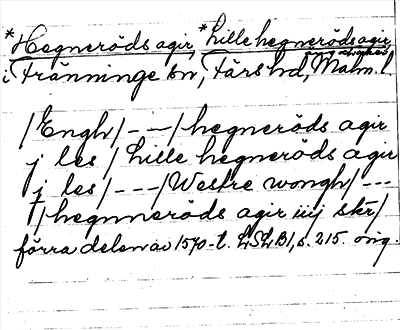 *Hegneröds agir, *Lille hegneröds agir,
i Tränninge sn, Färs hd, Malm. l.
/Engh/ - - - / hegneröds agir
j les / Lille hegneröds agir
j les / - - - / Westre wongh / - - -
/ hegnneröds agir iiij skr /
förra delen av 1570-t. LSLB1, s. 215. orig.